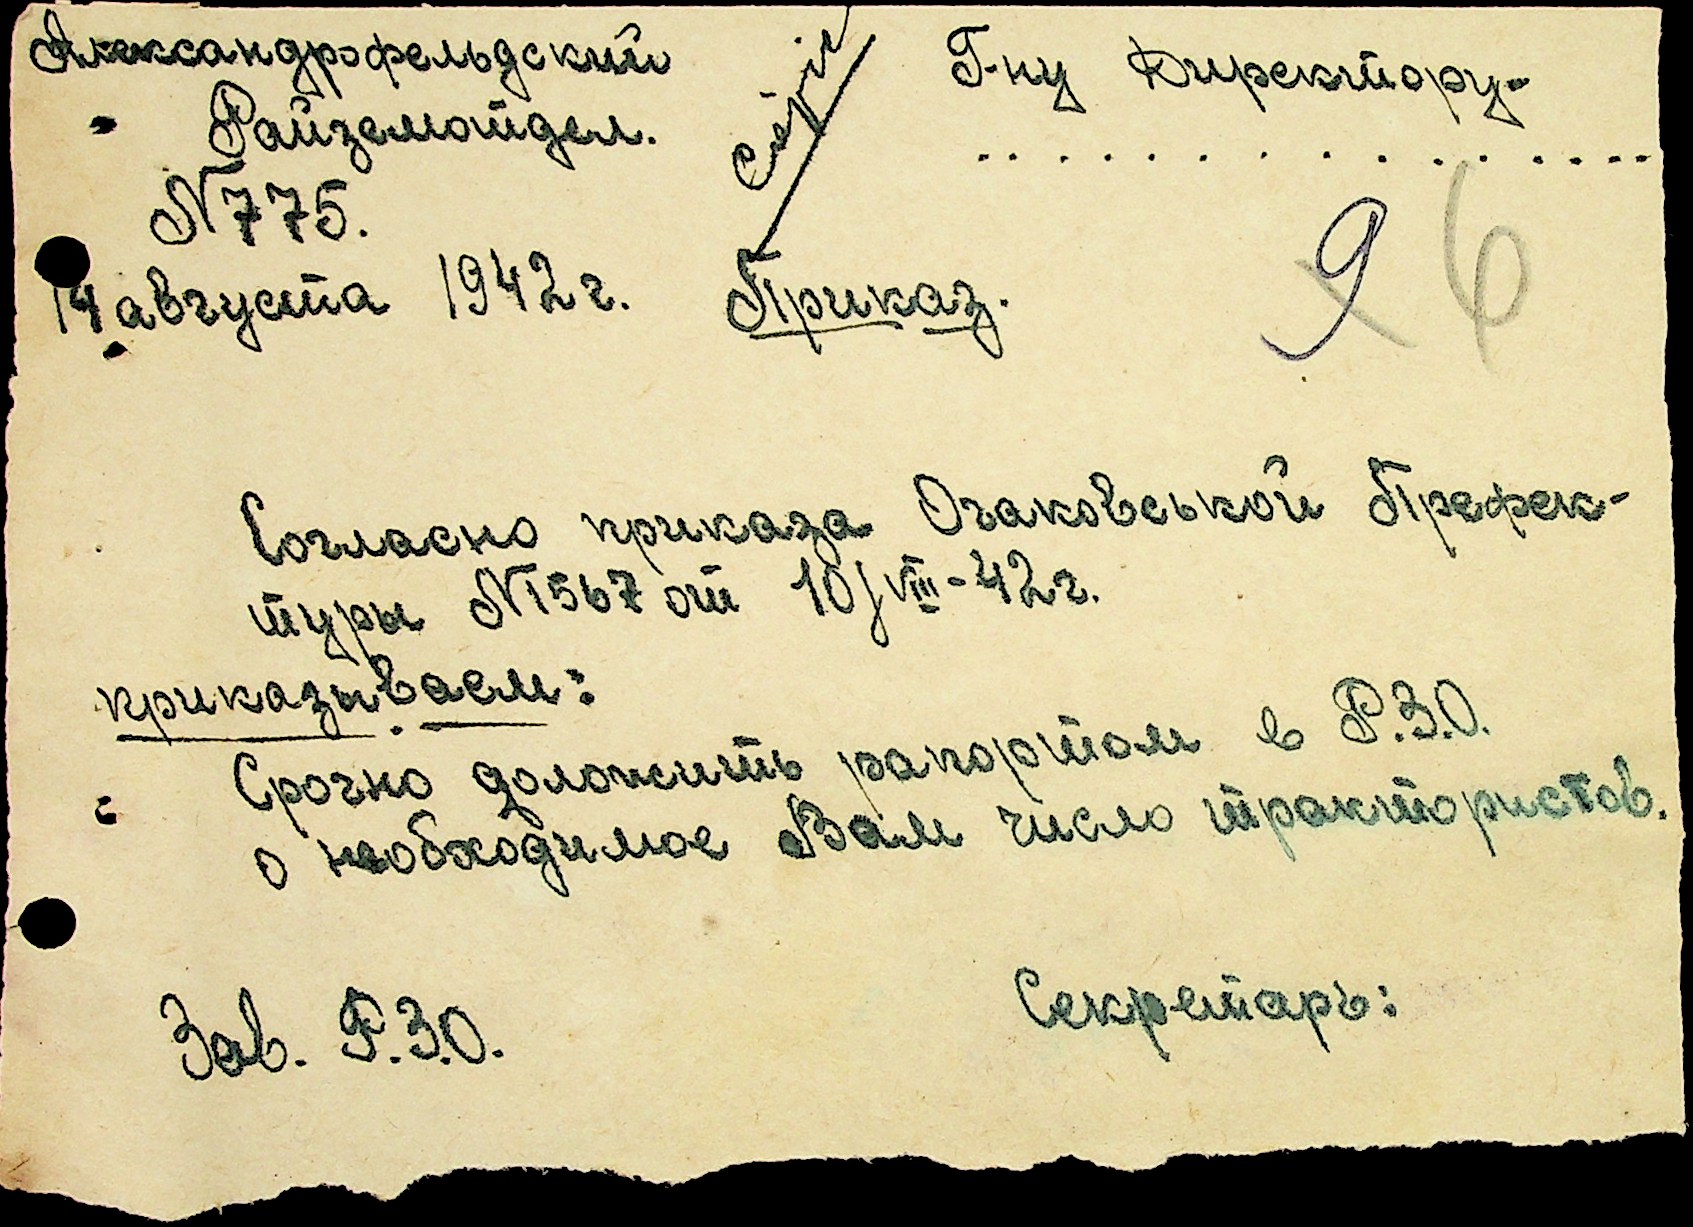 Александрофельдский
Райземотдел.
N775.
14 августа 1942 г.
Г-ну Директору
Приказ.
9 6
Согласно приказа Очаковськой Префек-
туры N1567 от 10/VIII-42г.
приказываем:
Срочно доложить рапортом в Р.З.О.
о необходимое Вам число трактористов.
Зав. Р.З.О.
Секретарь: